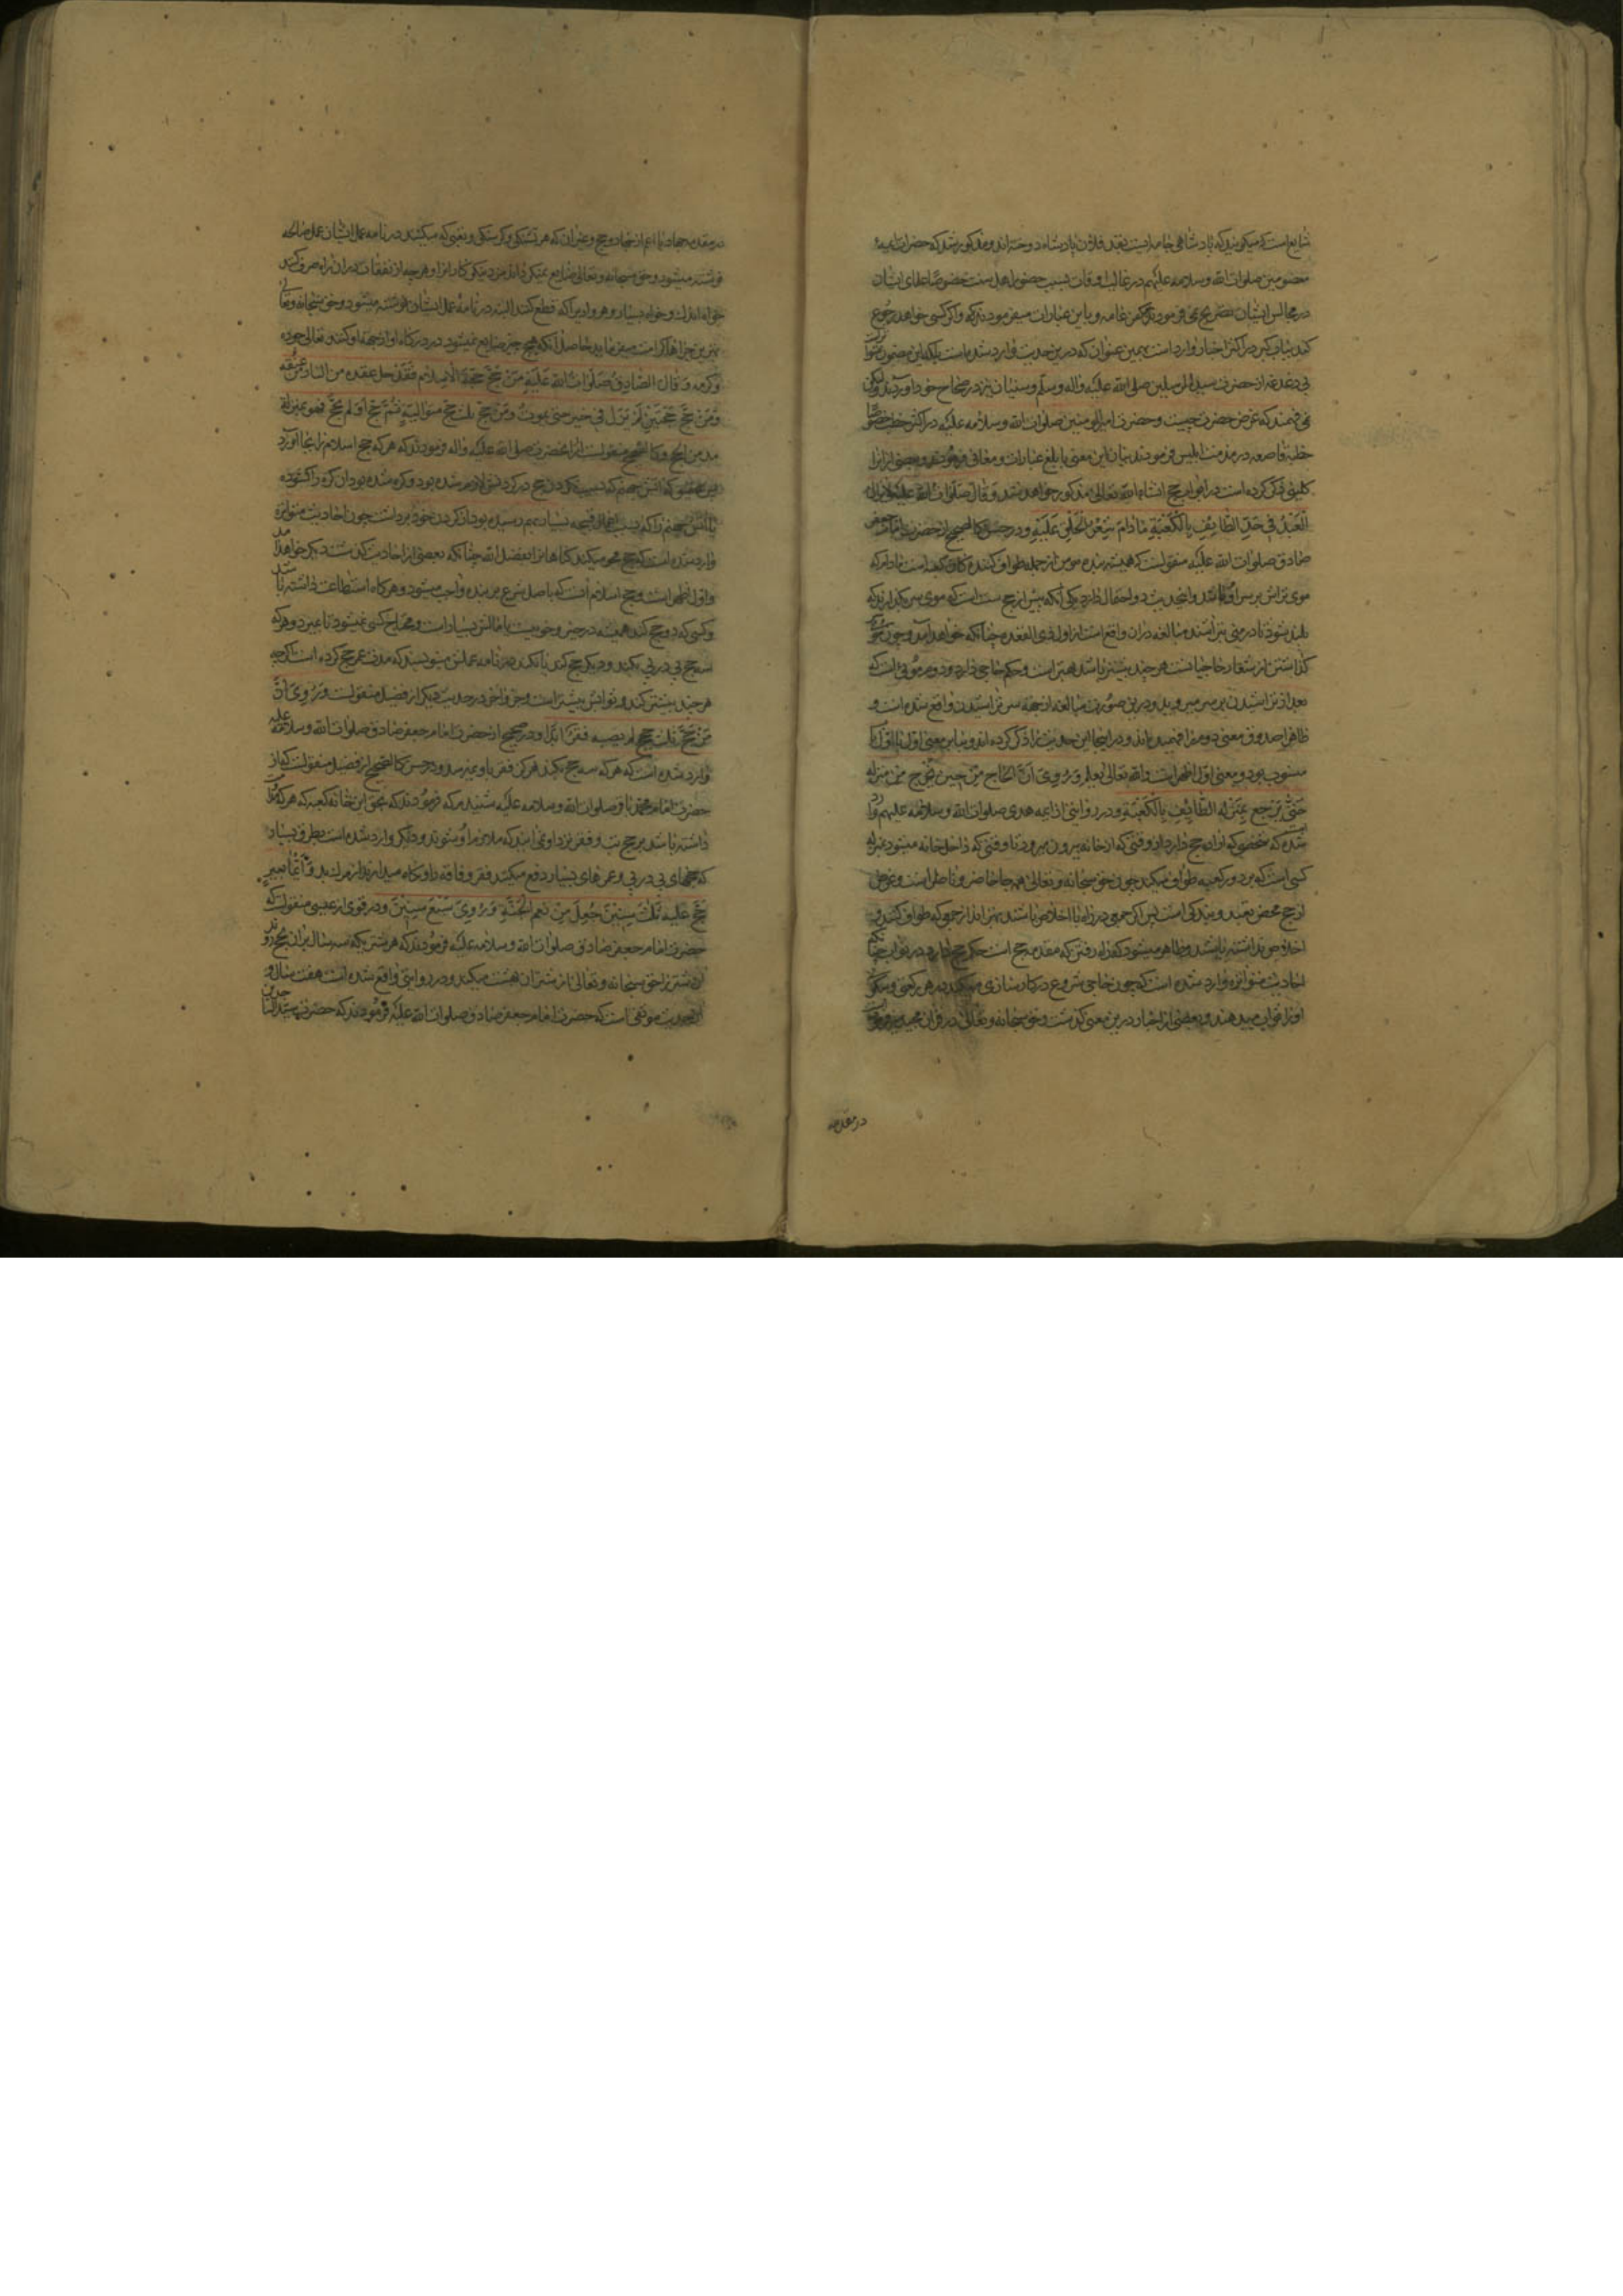 شایع است که میکویند که پادشاهی جامه ایست بقد فلان پادشاه دوخته اند و مذکور شد که حضرات ائمه
معصومین صلوات الله و سلامه علیهم در غالب اوقات بسبب حضور اهل سنت خصوصا علمای ایشان
در مجالس ایشان تصریح نمی فرمودند بکفر عامه و باین عبارات میفرمودند که و اکر کسی خواهد رجوع
کند بباب کبر در اکثر اخبار وارد است بهمین عنوان که درین حدیث وارد شده است بلکه این مضمون متواتر
بی دغدغه از حضرت سید المرسلین صلی الله علیه و اله و سلم و سنیان نیز در صحاح خود آورده اند ولیکن
نمی فهمند که غرض حضرت چیست و حضرت امیر المومنین صلوات الله و سلامه علیه در اکثر خطب خصوصا
خطبه قاصعه در مذمت ابلیس فرمودند بیان این معنی بابلغ عبارات و معانی فرموده و بعضی از انرا
کلینی ذکر کرده است در ابواب حج انشاء الله تعالی مذکور خواهد شد و قال صلوات الله علیه لا یزال
العبد فی حد الطائف بالکعبة ما دام شعر الحلق علیه و در حسن کالصحیح از حضرت امام جعفر
صادق صلوات الله علیه منقولست که همیشه بنده مومن از جمله طواف کننده کان کعبه است مادام که
موی تراش بر سر او باشد و این حدیث دو احتمال دارد یکی آنکه پیش از حج سنت است که موی سر بکذارند که
بلند شود تا در منی بتراشند مبالغه دران واقع است از اول ذی القعده چنانکه خواهد آمد و چون موی
کذاشتن از شعار حاجیانست هر چند بیشتر باشد بهتر است و حکم حاجی دارد و دوم موئی است که
بعد از تراشیدن بر سر میروید و درین صورت مبالغه از جهة سر تراشیدن واقع شده است و
ظاهرا صدوق معنی دوم را فهمیده اند و در اینجا این حدیث را ذکر کرده اند و بنابر معنی اول باب اول
منسوب بود و معنی اول اظهر است و الله تعالی یعلم و روی ان الحاج من حین یخرج من منزله
حتی یرجع بمنزلة الطائف بالکعبة و در روایتی از ایمه هدی صلوات الله و سلامه علیهم وارد
شده که شخصی که اراده حج دارد از وقتی که از خانه بیرون میرود تا وقتی که داخل خانه میشود بمنزله
کسی است که بر دور کعبه طواف میکند چون حق سبحانه و تعالی همه جا حاضر و ناظر است و غرض
از حج محض تعبد و بندکی است پس اکر جمعی در راه با اخلاص باشند بهتر اند از جمعی که طواف کنند و
اخلاص نداشته باشند و ظاهر میشود که راه رفتن که مقدمه حج است حکم حج دارد در ثواب چنانکه
احادیث متواتره وارد شده است که چون حاجی شروع در کار سازی میکند بهر رکعتی و سکونی
او را ثواب میدهند و بعضی از اخبار درین معنی کذشت و حق سبحانه و تعالی در قران مجید فرموده
در مقدمه
در مقدمه جهاد یا اعم از جهاد و حج و غیر ان که هر تشنکی و کرسنکی و تعبی که میکشند در نامه عمل ایشان عمل صالحه
نوشته میشود و حق سبحانه و تعالی ضایع نمیکرداند مزد نیکو کارانرا و هر چه از نفقات در ان راه صرف کنند
خواه اندک و خواه بسیار و هر وادیرا که قطع کنند البته در نامه عمل ایشان نوشته میشود و حق سبحانه و تعالی
بهترین جزاها کرامت میفرماید حاصل آنکه هیچ چیز ضایع نمیشود در درکاه او از جهة او کنند تعالی جوده
و کرمه و قال الصادق صلوات الله علیه من حج حجة الاسلام فقد حل عقدة من النار من عنقه
و من حج حجتین لم یزل فی خیر حتی یموت و من حج ثلث حجج متوالیة ثم حج او لم یحج فهو بمنزلة
مدمن الحج و کالصحیح منقولست از انحضرت صلی الله علیه و اله فرمودند که هر که حج اسلام را بجا آورد
وارد شده است که حج محو میکند کناهانرا بفضل الله چنانکه بعضی از احادیث کذشت و دیکر خواهد آمد
و اول اظهر است و حج اسلام آنست که باصل شرع بر بنده واجب میشود و هرکاه استطاعت داشته باشد
و کسی که دو حج کند همیشه در خیر و خوبیست یا مالش بسیار است و محتاج کسی نمیشود تا بمیرد و هر که
سه حج پی در پی بکند و دیکر حج کند یا نکند در نامه عملش مینویسند که مدت عمر حج کرده است اکر چه
هر چند بیشتر کند و ثوابش بیشتر است و در حدیث دیکر از فضیل منقولست و روی ان
من حج ثلث حجج لم یصبه فقر ابدا و در صحیح از حضرت امام جعفر صادق صلوات الله و سلامه علیه
وارد شده است که هر که سه حج بکند هرکز فقر باو نمیرسد و در حسن کالصحیح از فضیل منقولست که از
حضرت امام محمد باقر صلوات الله و سلامه علیه شنیدم که فرمودند که بحق این خانه کعبه که هر که
داشته باشد بر حج تب و فقر نزد او نمی ایند که ملازم او شوند و دیکر وارد شده است بطرق بسیار
که حجهای پی در پی و عمرهای بسیار دفع میکنند فقر و فاقه را و نکاه میدارند از مرک بد و ایما بعیر
حج علیه ثلث سنین جعل من نعم الجنة و روی سبع سنین و در قوی از عیسی منقولست که
حضرت امام جعفر صادق صلوات الله و سلامه علیه فرمودند که هر شتری که سه سال بران بحج روند
ان شتر را حق سبحانه و تعالی از شتران بهشت میکند و در روایتی واقع شده است هفت سال و
این حدیث موثقی است که حضرت امام جعفر صادق صلوات الله علیه فرمودند که حضرت سید الساجدین